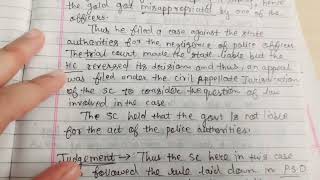 the gold got misappropriated by one of the
officers.
Thus he filed a case against the state
authorities for the negligence of police officers
The trial court made the state liable but the
HC reversed its decision and thus, an appeal
was filed under the civil Appellate Jurisdiction
of the SC to consider the question of law
involved in the case
The SC held that the govt is not liable
for the act of the police authorities.
Judgement → Thus the SC here in this case
followed the rule laid down in P&O